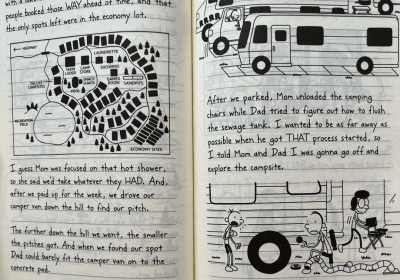 people booked those WAY ahead of time, and that
the only spots left were in the economy lot.
HIGHWAY
LAUNDRETTE
MAIN LODGE
CAMP STORE
SHOWERS
DELUXE CAMPSITES
POOL
GAMES ROOM
SANDPITS
RECREATION FIELD
ECONOMY SITES
I guess Mom was focused on that hot shower,
so she said we'd take whatever they HAD. And,
after we paid up for the week, we drove our
camper van down the hill to find our pitch.
The further down the hill we went, the smaller
the pitches got. And when we found our spot
Dad could barely fit the camper van on to the
concrete pad.
After we parked, Mom unloaded the camping
chairs while Dad tried to figure out how to flush
the sewage tank. I wanted to be as far away as
possible when he got THAT process started, so
I told Mom and Dad I was gonna go off and
explore the campsite.